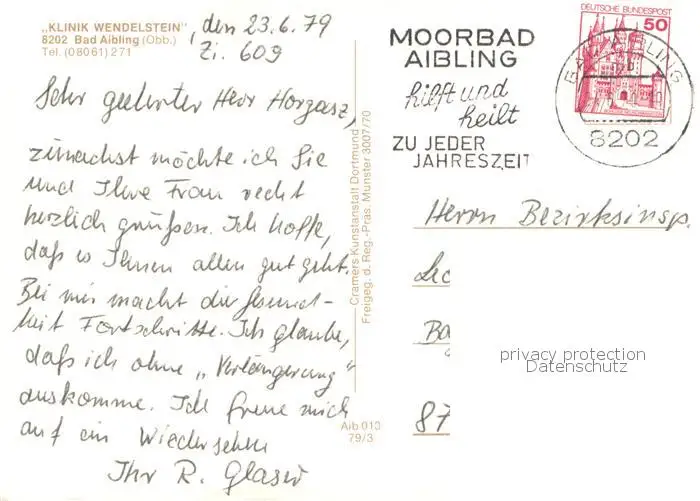 „KLINIK WENDELSTEIN"
8202 Bad Aibling (Obb.)
Tel. (08061) 271
, den 23.6.79
Zi. 609
Sehr geehrter Herr
zunächst möchte ich Sie
und Ihre Frau recht
herzlich grüßen. Ich hoffe,
daß es Ihnen allen gut geht.
Bei mir macht die Gesund-
heit Fortschritte. Ich glaube,
daß ich ohne „Verlängerung"
auskomme. Ich freue mich
auf ein Wiedersehen
Ihr R. Glaser
Cramers Kunstanstalt Dortmund
Freigeg. d. Reg.-Präs. Münster 3007/70
Aib 010
79/3
MOORBAD
AIBLING
hilft und
heilt
ZU JEDER
JAHRESZEIT
DEUTSCHE BUNDESPOST
50
BAD AIBLING
8202
Herrn Bezirksinsp.
87
privacy protection
Datenschutz